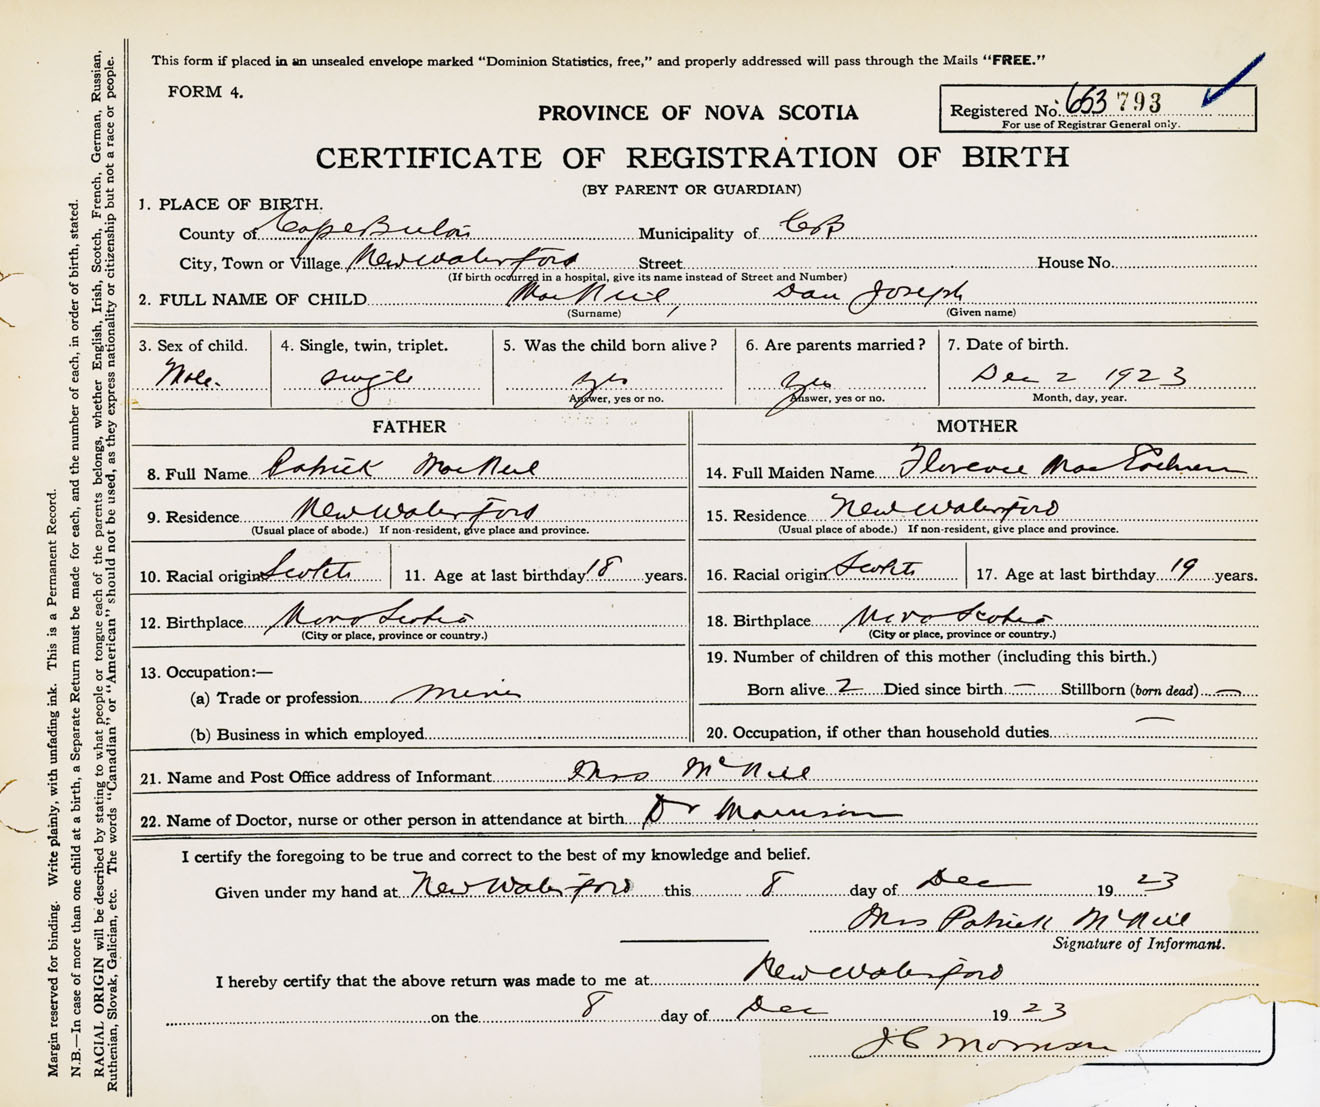 This form if placed in an unsealed envelope marked "Dominion Statistics, free," and properly addressed will pass through the Mails "FREE."
FORM 4.
Registered No. 653 793
For use of Registrar General only.
PROVINCE OF NOVA SCOTIA
CERTIFICATE OF REGISTRATION OF BIRTH
(BY PARENT OR GUARDIAN)
1. PLACE OF BIRTH.
County of Cape Breton Municipality of CB
City, Town or Village New Waterford Street House No.
(If birth occurred in a hospital, give its name instead of Street and Number)
2. FULL NAME OF CHILD MacNeil, Dan Joseph
(Surname) (Given name)
3. Sex of child. 4. Single, twin, triplet. 5. Was the child born alive? 6. Are parents married? 7. Date of birth.
Male. single yes yes Dec 2 1923
Answer, yes or no. Answer, yes or no. Month, day, year.
FATHER
8. Full Name Patrick MacNeil
9. Residence New Waterford
(Usual place of abode.) If non-resident, give place and province.
10. Racial origin Scotch 11. Age at last birthday 18 years.
12. Birthplace Nova Scotia
(City or place, province or country.)
13. Occupation:—
(a) Trade or profession miner
(b) Business in which employed
MOTHER
14. Full Maiden Name Florence MacEachern
15. Residence New Waterford
(Usual place of abode.) If non-resident, give place and province.
16. Racial origin Scotch 17. Age at last birthday 19 years.
18. Birthplace Nova Scotia
(City or place, province or country.)
19. Number of children of this mother (including this birth.)
Born alive 2 Died since birth — Stillborn (born dead) —
20. Occupation, if other than household duties —
21. Name and Post Office address of Informant Mrs McNeil
22. Name of Doctor, nurse or other person in attendance at birth Dr Morrison
I certify the foregoing to be true and correct to the best of my knowledge and belief.
Given under my hand at New Waterford this 8 day of Dec 1923
Mrs Patrick McNeil
Signature of Informant.
I hereby certify that the above return was made to me at New Waterford
on the 8 day of Dec 1923
J C Morrison
Margin reserved for binding. Write plainly, with unfading ink. This is a Permanent Record.
N.B.—In case of more than one child at a birth, a Separate Return must be made for each, and the number of each, in order of birth, stated.
RACIAL ORIGIN will be described by stating to what people or tongue each of the parents belongs, whether English, Irish, Scotch, French, German, Russian,
Ruthenian, Slovak, Galician, etc. The words "Canadian" or "American" should not be used, as they express nationality or citizenship but not a race or people.